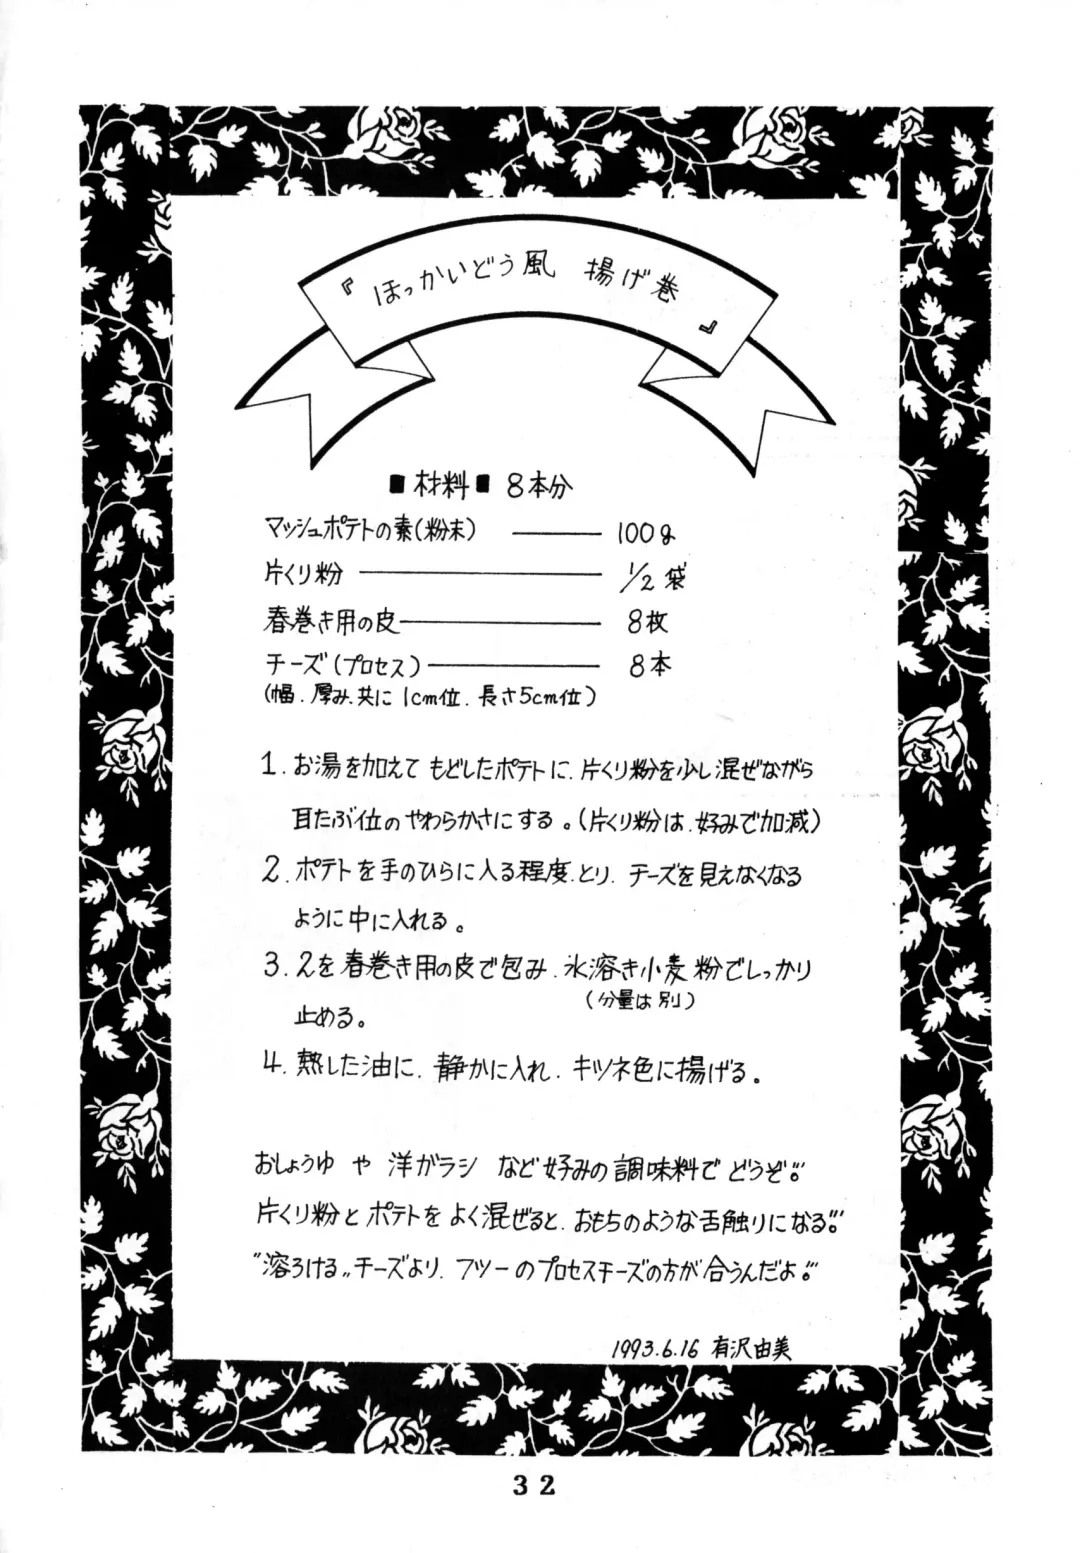 『ほっかいどう風 揚げ巻』
■材料■ 8本分
マッシュポテトの素(粉末) ──── 100g
片くり粉 ──────── 1/2袋
春巻き用の皮 ──────── 8枚
チーズ(プロセス) ──────── 8本
(幅.厚み.共に1cm位.長さ5cm位)
1.お湯を加えてもどしたポテトに.片くり粉を少し混ぜながら
耳たぶ位のやわらかさにする。(片くり粉は.好みで加減)
2.ポテトを手のひらに入る程度.とり.チーズを見えなくなる
ように中に入れる。
3.2を春巻き用の皮で包み.水溶き小麦粉でしっかり
(分量は別)
止める。
4.熱した油に.静かに入れ.キツネ色に揚げる。
おしょうゆ や 洋ガラシ など好みの調味料でどうぞ!!
片くり粉とポテトをよく混ぜると.おもちのような舌触りになる!!
"溶ろける„チーズより.フツーのプロセスチーズの方が合うんだよ!!
1993.6.16 有沢由美
32